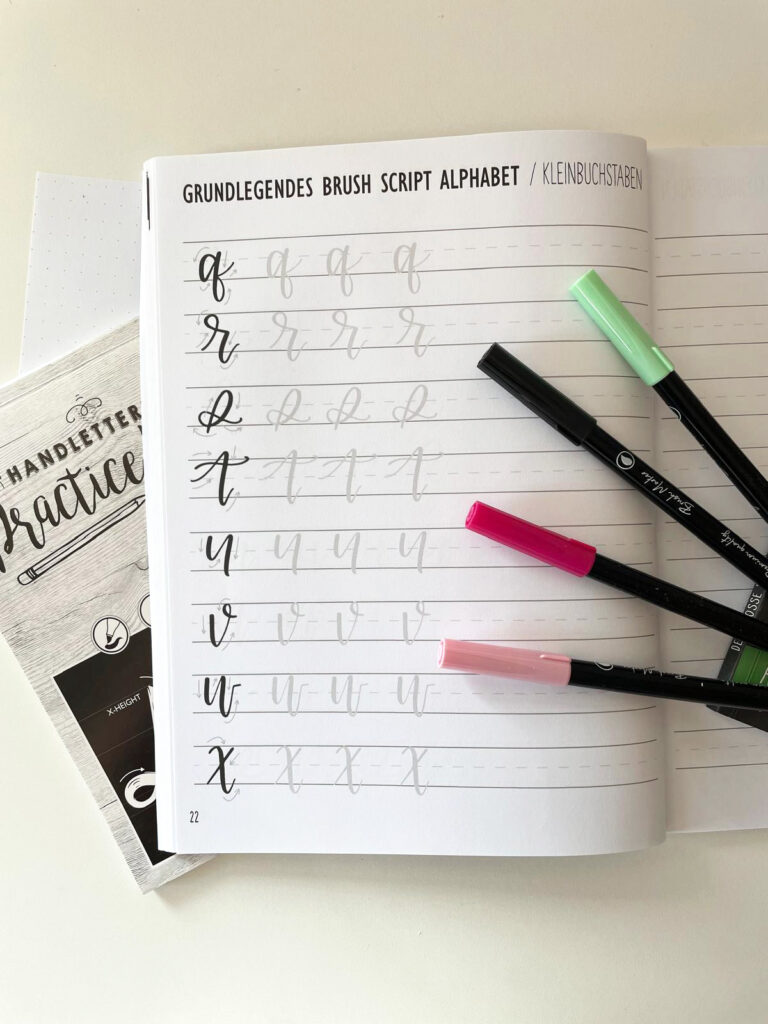 GRUNDLEGENDES BRUSH SCRIPT ALPHABET / KLEINBUCHSTABEN
q q q q
r r r r
s s s s
t t t t
u u u u
v v v v
w w w w
x x x x
22
HANDLETTER
Practice
X-HEIGHT
Brush Marker
Premium quality